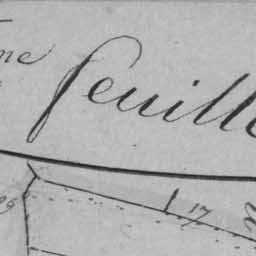 me feuille
17